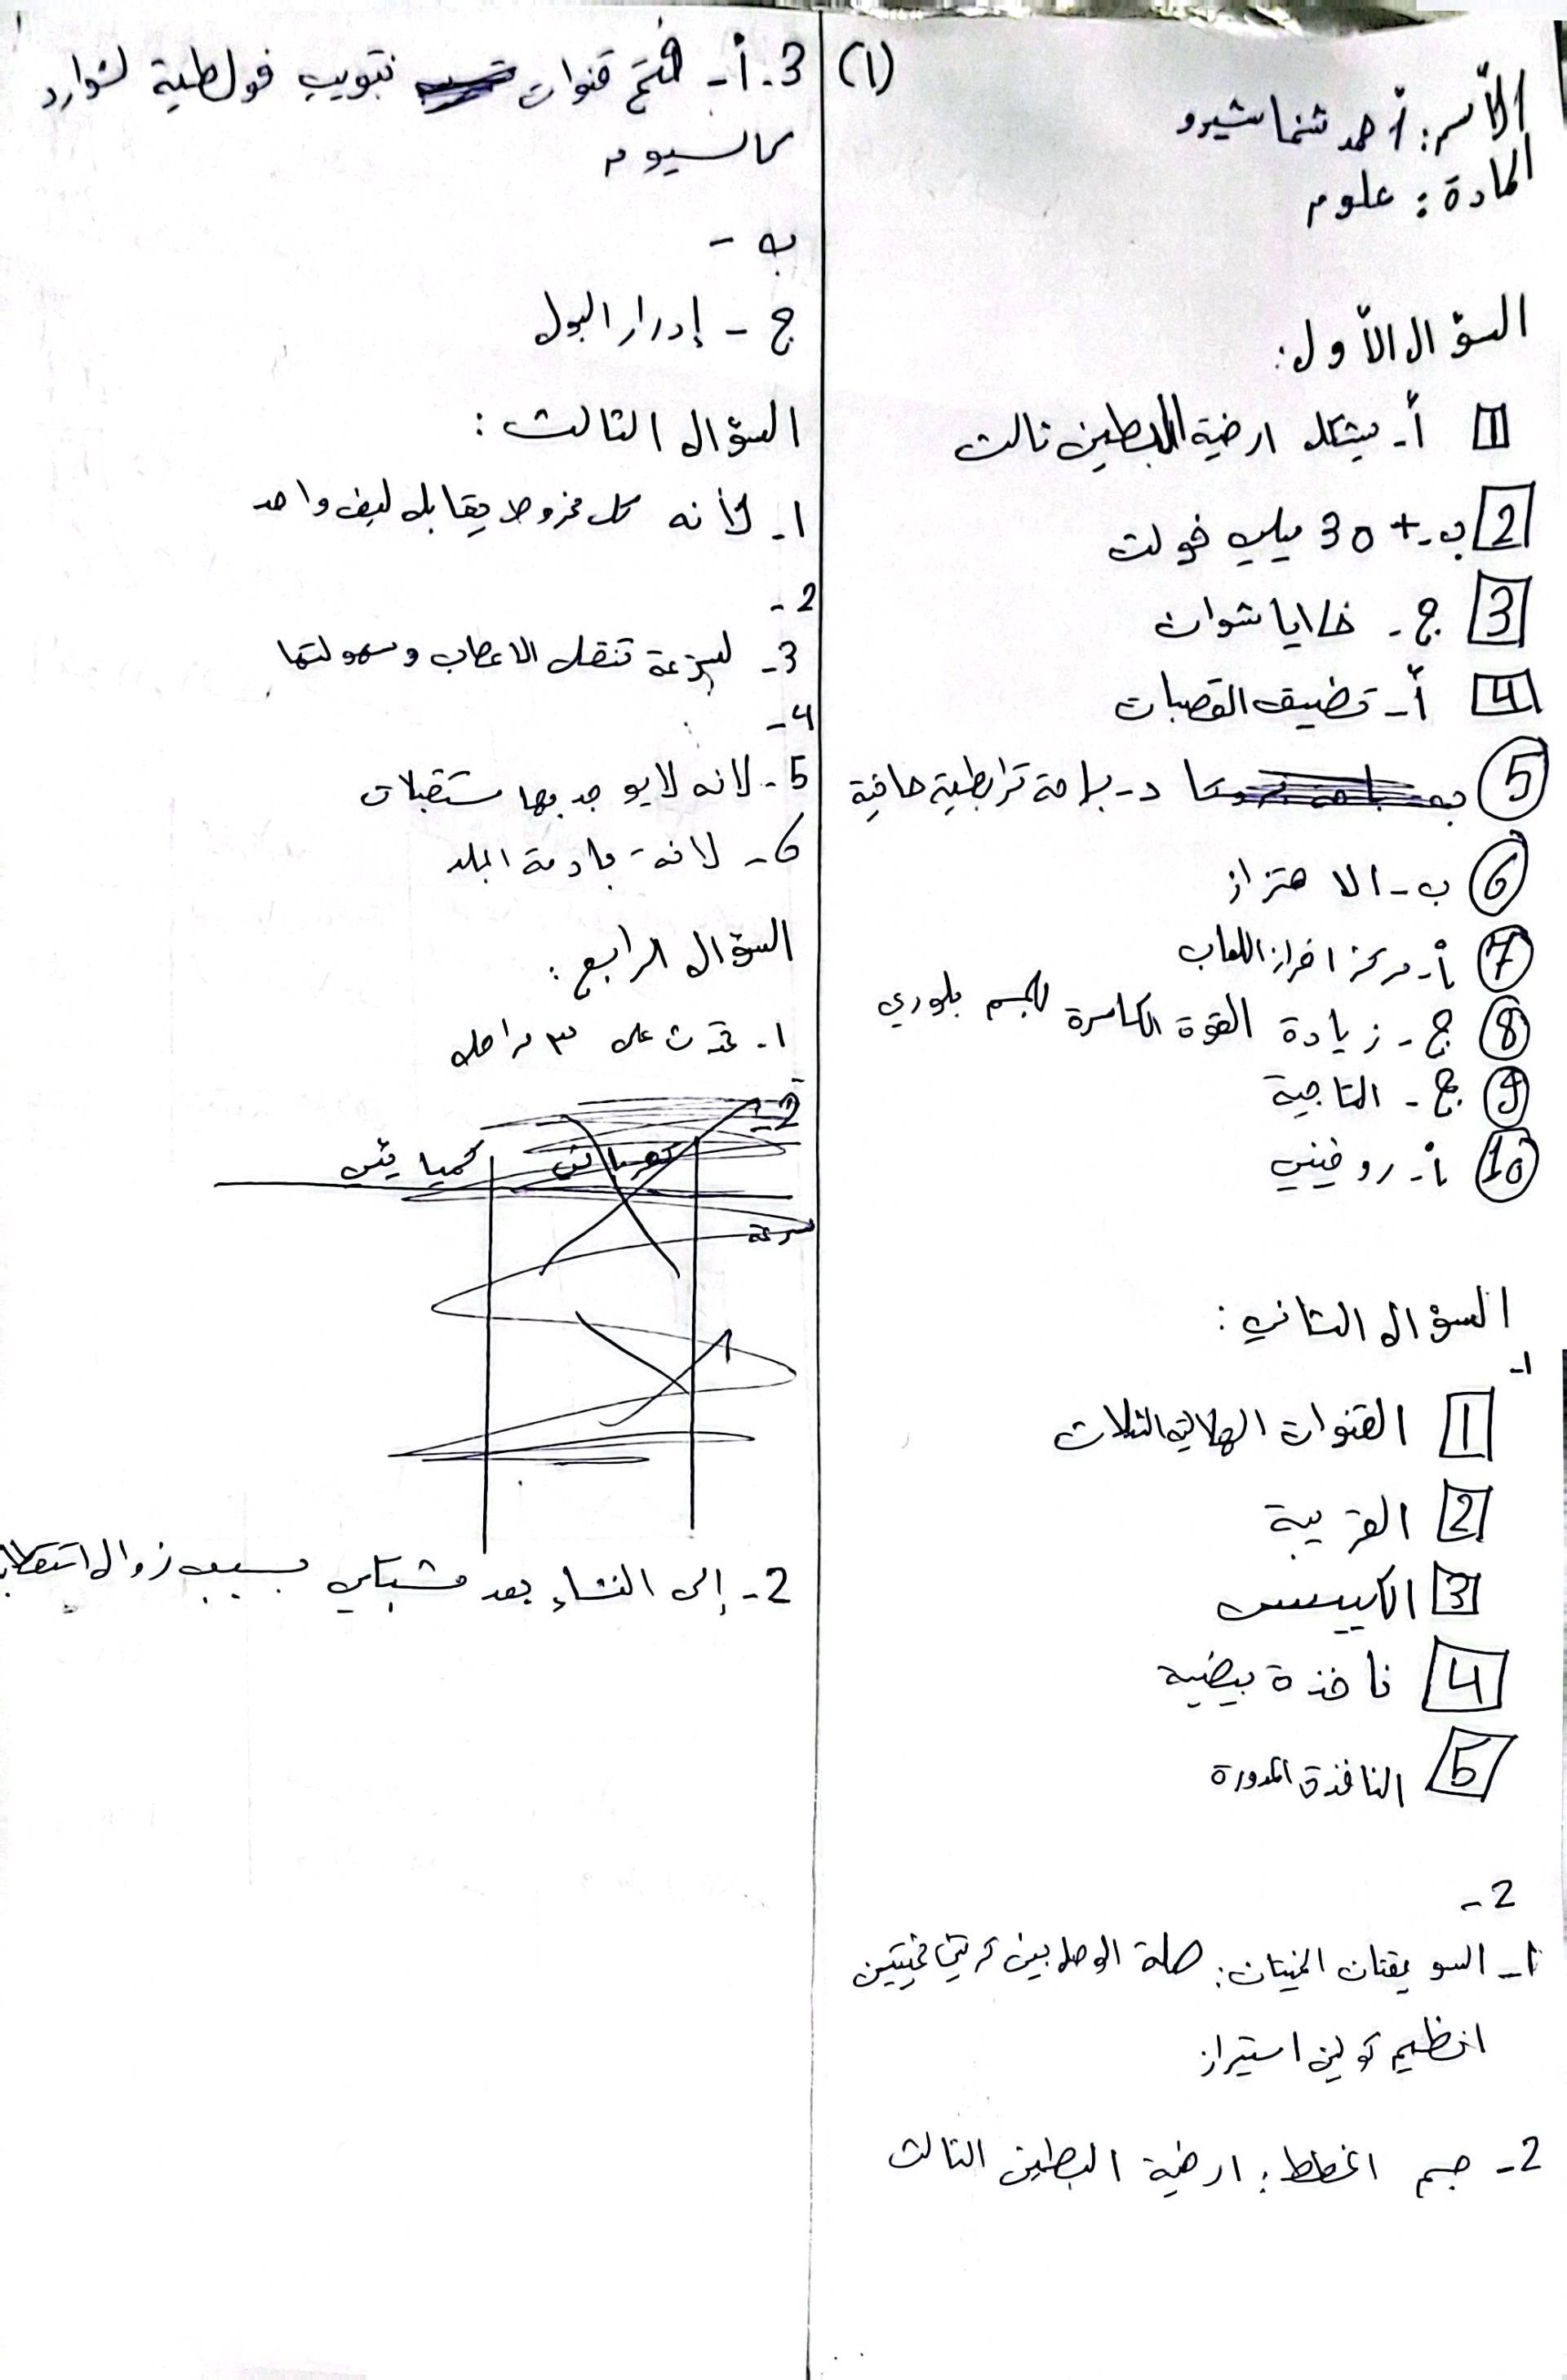 (1)
الأسم: أحمد شماشيرو
المادة: علوم
السؤال الأول:
1 أ- يشكل ارضية البطين ثالث
2 ب- +30 ميلي فولت
3 ج- خلايا شوان
4 أ- تضيق القصبات
5 د- باحة ترابطية حافية
6 ب- الاهتزاز
7 أ- مركز افراز اللعاب
8 ج- زيادة القوة الكاسرة للجسم بلوري
9 ج- التاجية
10 أ- روفيني
السؤال الثاني:
1-
1 القنوات الهلالية الثلاث
2 القريبة
3 الكييس
4 نافذة بيضية
5 النافذة المدورة
2-
1- السويقتان المخيتان: صلة الوصل بين
2- جسم المخطط: ارضية البطين الثالث
3. أ- فتح قنوات تبويب فولطية لشوارد
كالسيوم
ب -
ج - إدرار البول
السؤال الثالث:
1- لأنه كل مخروط يقابله ليف واحد
2-
3- لسرعة تنقل الاعصاب وسهولتها
4-
5- لانه لا يوجد بها مستقبلات
6- لانه بادمة الجلد
السؤال الرابع:
1- تحدث على ٣ مراحل
2-
كهربائي كميائي
سرعة
2- إلى الغشاء بعد مشبكي بسبب زوال استقطاب